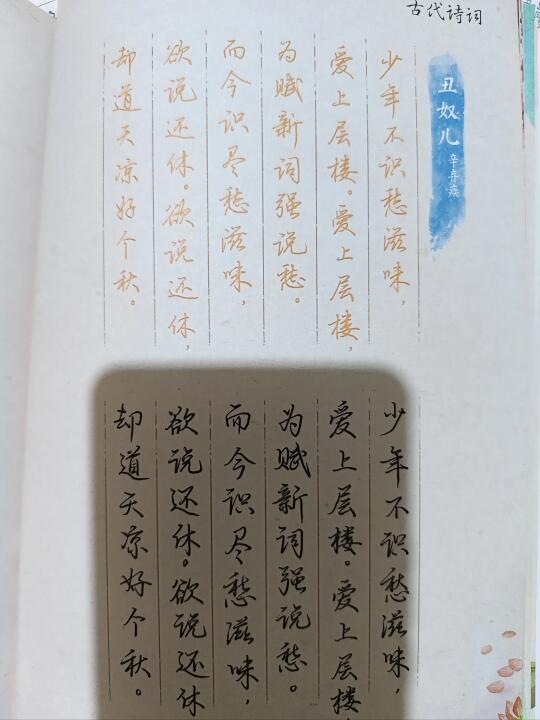 古代诗词
丑奴儿 辛弃疾
少年不识愁滋味，
爱上层楼。爱上层楼，
为赋新词强说愁。
而今识尽愁滋味，
欲说还休。欲说还休，
却道天凉好个秋。
少年不识愁滋味，
爱上层楼。爱上层楼
为赋新词强说愁。
而今识尽愁滋味，
欲说还休。欲说还休
却道天凉好个秋。